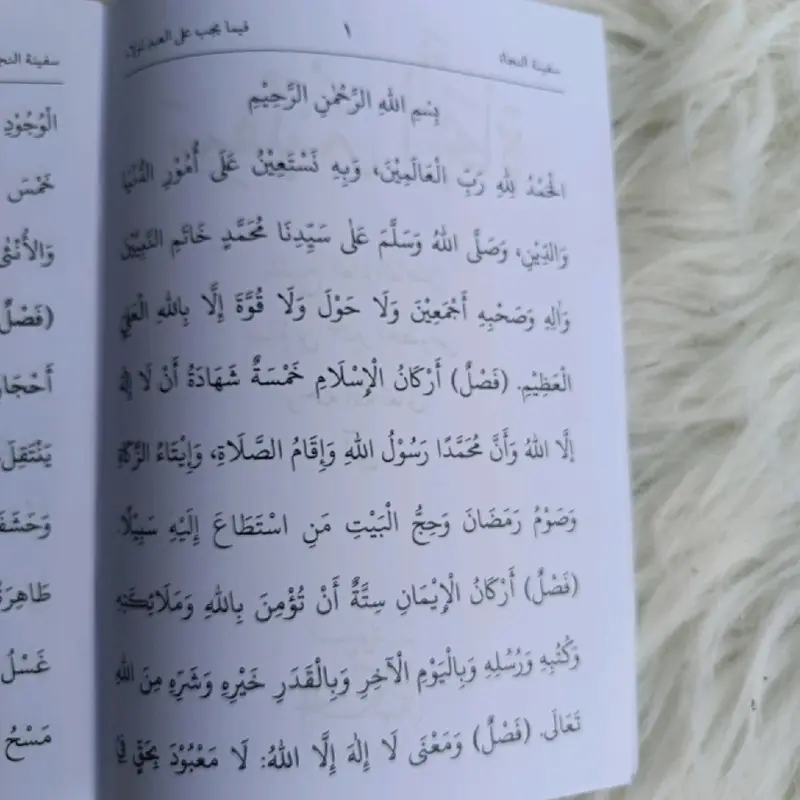 سفينة النجاة ١ فيما يجب على العبد لمولاه
بِسْمِ اللهِ الرَّحْمٰنِ الرَّحِيْمِ
الْحَمْدُ لِلهِ رَبِّ الْعَالَمِيْنَ، وَبِهِ نَسْتَعِيْنُ عَلَى أُمُوْرِ الدُّنْيَا
وَالدِّيْنِ، وَصَلَّى اللهُ وَسَلَّمَ عَلَى سَيِّدِنَا مُحَمَّدٍ خَاتَمِ النَّبِيِّيْنَ
وَاٰلِهِ وَصَحْبِهِ أَجْمَعِيْنَ وَلَا حَوْلَ وَلَا قُوَّةَ إِلَّا بِاللهِ الْعَلِيِّ
الْعَظِيْمِ. (فَصْلٌ) أَرْكَانُ الْإِسْلَامِ خَمْسَةٌ شَهَادَةُ أَنْ لَا إِلٰهَ
إِلَّا اللهُ وَأَنَّ مُحَمَّدًا رَسُوْلُ اللهِ وَإِقَامُ الصَّلَاةِ، وَإِيْتَاءُ الزَّكَاةِ
وَصَوْمُ رَمَضَانَ وَحِجُّ الْبَيْتِ مَنِ اسْتَطَاعَ إِلَيْهِ سَبِيْلًا.
(فَصْلٌ) أَرْكَانُ الْإِيْمَانِ سِتَّةٌ أَنْ تُؤْمِنَ بِاللهِ وَمَلَائِكَتِهِ
وَكُتُبِهِ وَرُسُلِهِ وَبِالْيَوْمِ الْآخِرِ وَبِالْقَدَرِ خَيْرِهِ وَشَرِّهِ مِنَ اللهِ
تَعَالَى. (فَصْلٌ) وَمَعْنَى لَا إِلٰهَ إِلَّا اللهُ: لَا مَعْبُوْدَ بِحَقٍّ فِي
سفينة
الْوُجُوْدِ
خَمْسَ
وَالْأُنْثَى
(فَصْلٌ
أَحْجَارٍ
يَنْتَقِلَ
طَاهِرَةً
غَسْلُ
مَسْحُ